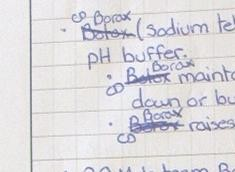 Borax
Botox (Sodium te
pH buffer.
Borax
Botox mainta
down or bu
Borax
Botox raises